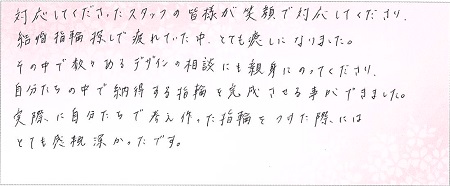 対応してくださったスタッフの皆様が笑顔で対応してくださり、
結婚指輪探しで疲れていた中、とても癒しになりました。
その中で数々あるデザインの相談にも親身にのってくださり、
自分たちの中で納得する指輪を完成させる事ができました。
実際に自分たちで考え作った指輪をつけた際には
とても感慨深かったです。